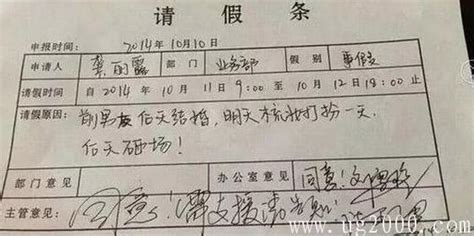 请假条
申报时间: 2014年10月10日
申请人 龚丽露 部门 业务部 假别 事假
请假时间 自2014年10月11日9:00至10月12日18:00止
请假原因: 前男友后天结婚,明天梳妆打扮一天,
后天砸场!
部门意见 办公室意见 同意!
主管意见 同意!需支援请告知!
www.ug2000.com